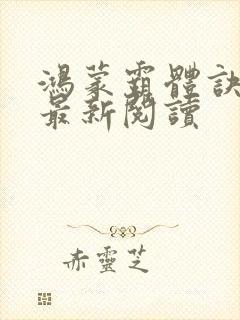 鴻蒙霸體訣
最新閱讀
赤靈芝